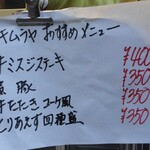 キムラヤ おすすめメニュー
牛ミスジステーキ ¥400
豚 ¥350
牛たたき ユーケ風 ¥350
とりあえず回種盛 ¥350